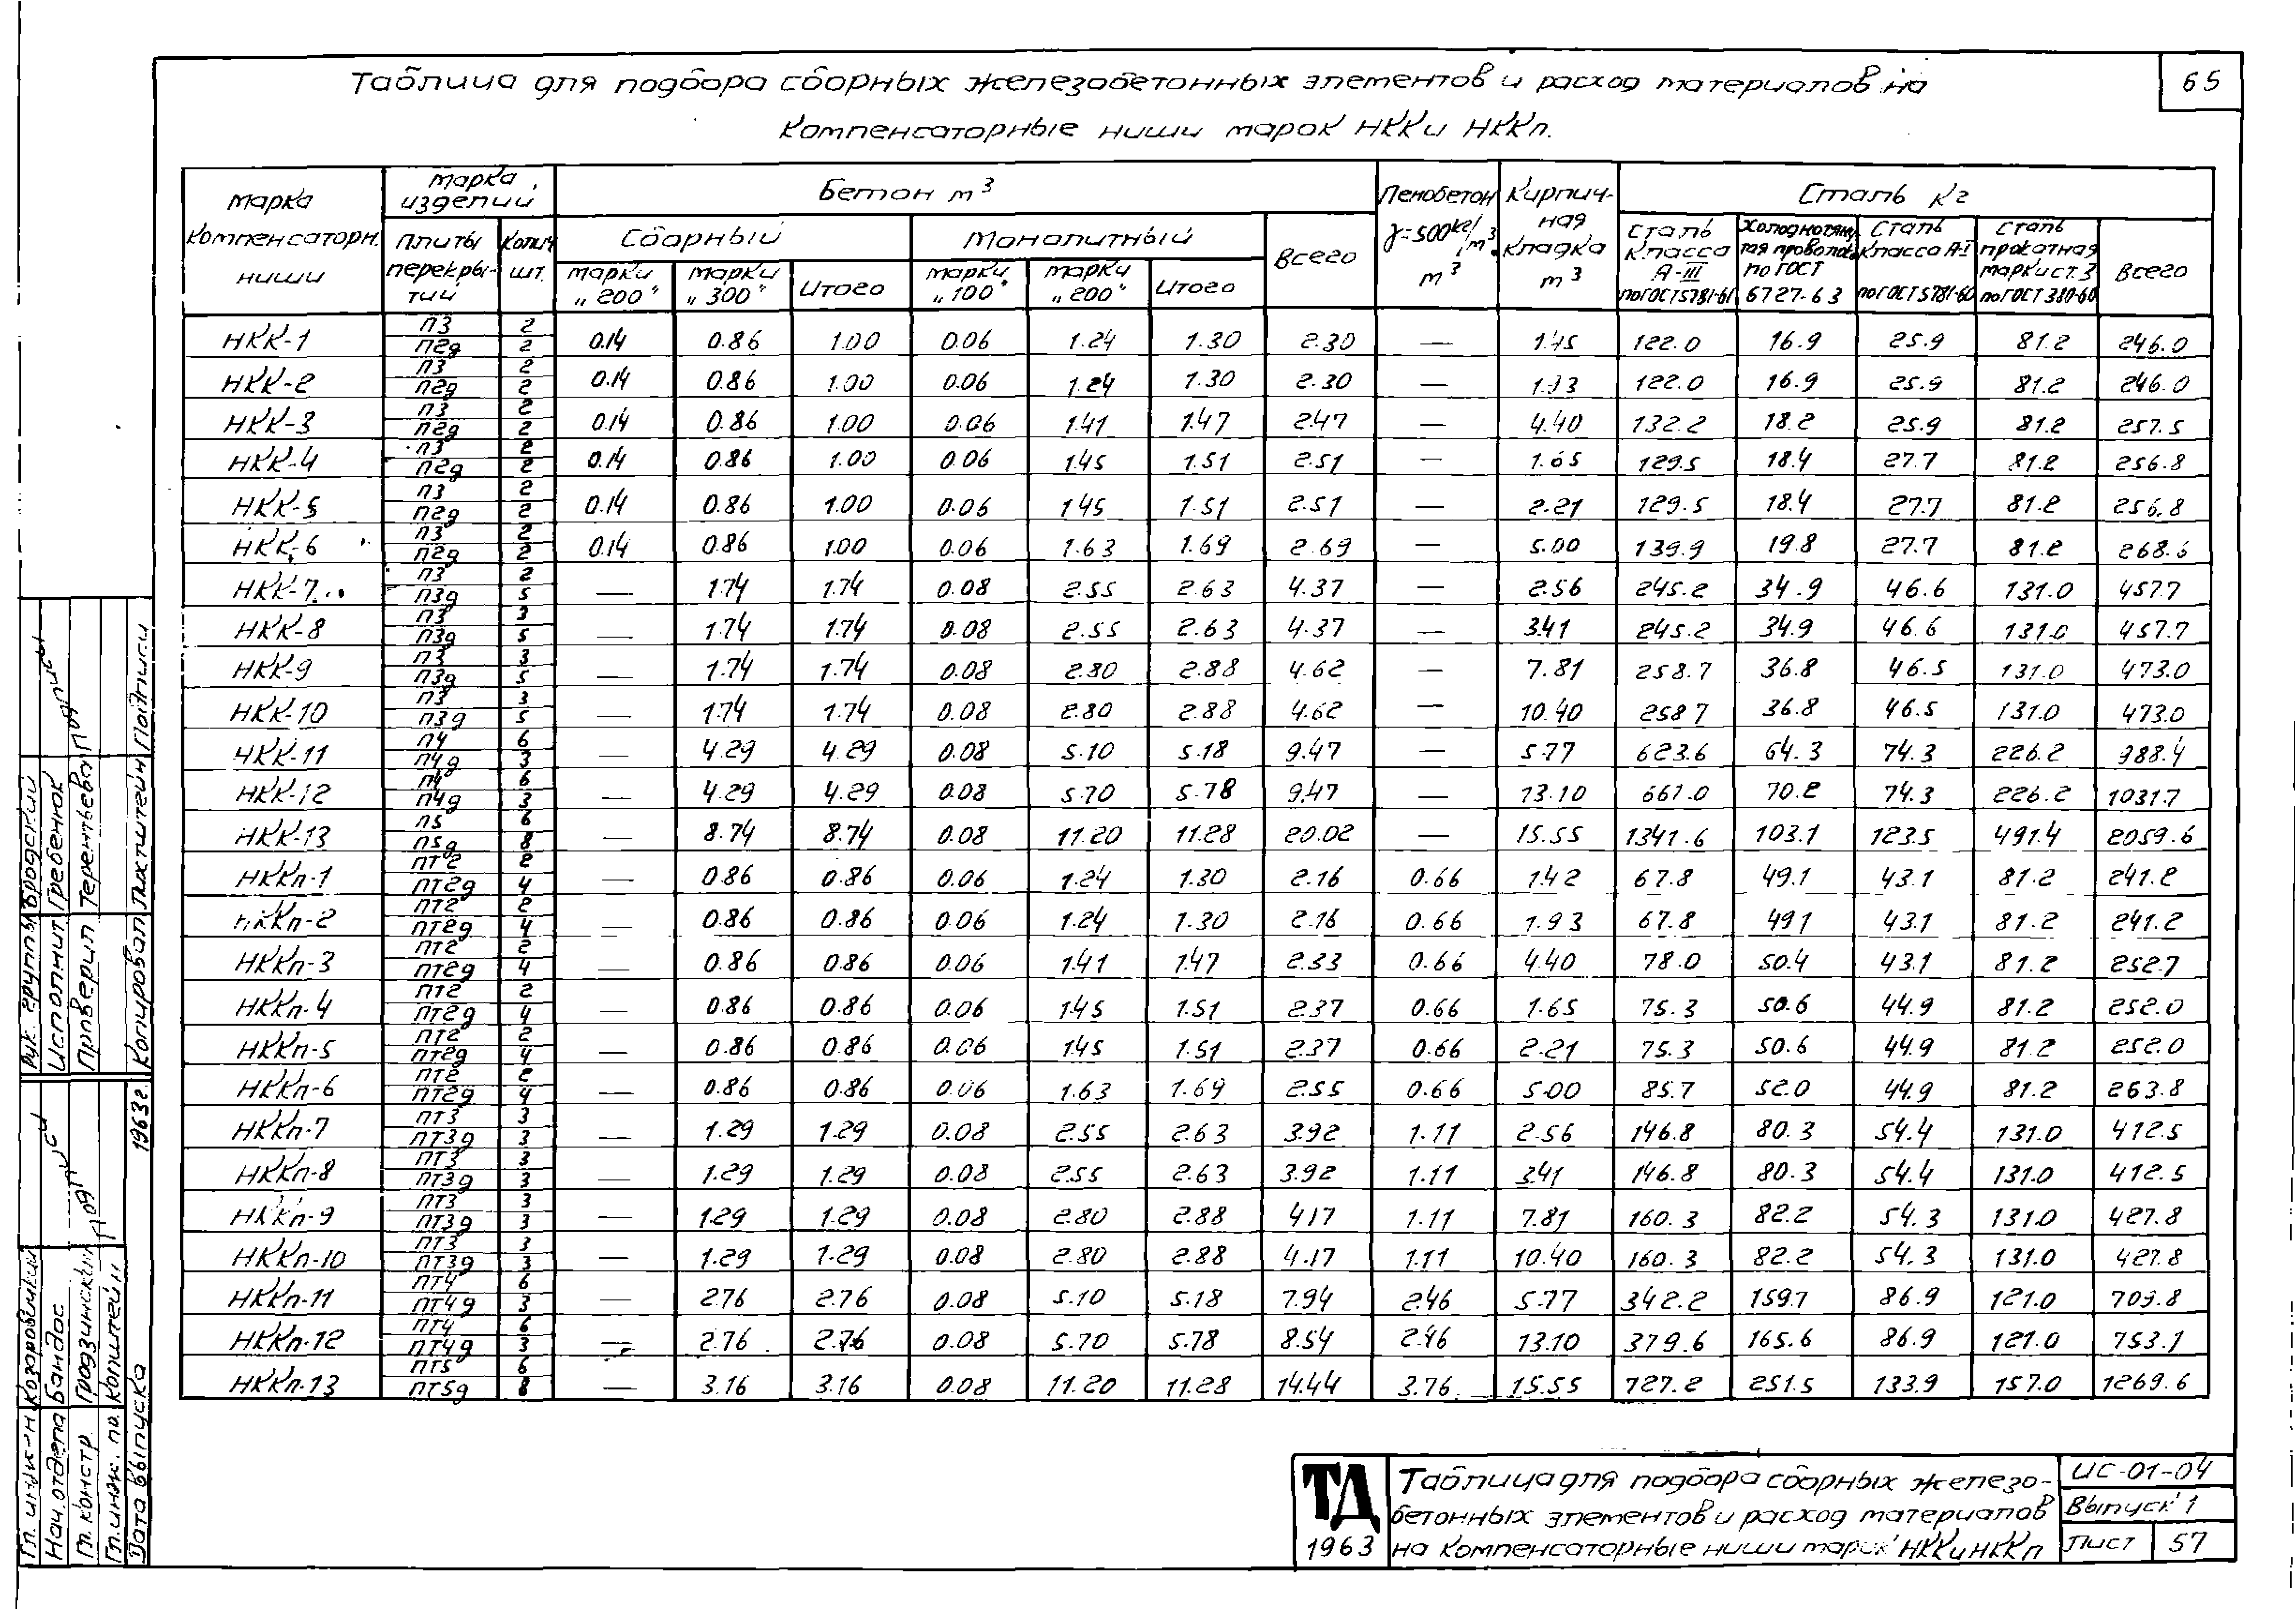 65
Таблица для подбора сборных железобетонных элементов и расход материалов на
компенсаторные ниши марок НКК и НККп.
Марка компенсаторн. ниши
Марка изделий
Плиты перекрытий
Колич. шт.
Бетон м³
Сборный
марки „200"
марки „300"
Итого
Монолитный
марки „100"
марки „200"
Итого
Всего
Пенобетон γ=500кг/м³ м³
Кирпичная кладка м³
Сталь кг
Сталь класса А-III по ГОСТ 5781-61
Холоднотянутая проволока по ГОСТ 6727-63
Сталь класса А-I по ГОСТ 5781-60
Сталь прокатная марки ст. 3 по ГОСТ 380-60
Всего
НКК-1 П3 2 П2д 2 0.14 0.86 1.00 0.06 1.24 1.30 2.30 — 1.45 122.0 16.9 25.9 81.2 246.0
НКК-2 П3 2 П2д 2 0.14 0.86 1.00 0.06 1.24 1.30 2.30 — 122.0 16.9 25.9 81.2 246.0
НКК-3 П3 2 П2д 2 0.14 0.86 1.00 0.06 1.41 1.47 2.47 — 4.40 132.2 18.2 25.9 81.2 257.5
НКК-4 П3 2 П2д 2 0.14 0.86 1.00 0.06 1.45 1.51 2.51 — 1.65 129.5 18.4 27.7 81.2 256.8
НКК-5 П3 2 П2д 2 0.14 0.86 1.00 0.06 1.45 1.51 2.51 — 2.21 129.5 18.4 27.7 81.2 256.8
НКК-6 П3 2 П2д 2 0.14 0.86 1.00 0.06 1.63 1.69 2.69 — 5.00 139.9 19.8 27.7 81.2 268.6
НКК-7 П3 2 П3д 5 — 1.74 1.74 0.08 2.55 2.63 4.37 — 2.56 245.2 34.9 46.6 131.0 457.7
НКК-8 П3 3 П3д 5 — 1.74 1.74 0.08 2.55 2.63 4.37 — 3.41 245.2 34.9 46.6 131.0 457.7
НКК-9 П3 3 П3д 5 — 1.74 1.74 0.08 2.80 2.88 4.62 — 7.81 258.7 36.8 46.5 131.0 473.0
НКК-10 П3 3 П3д 5 — 1.74 1.74 0.08 2.80 2.88 4.62 — 10.40 258.7 36.8 46.5 131.0 473.0
НКК-11 П4 6 П4д 3 — 4.29 4.29 0.08 5.10 5.18 9.47 — 5.77 623.6 64.3 74.3 226.2 988.4
НКК-12 П4 6 П4д 3 — 4.29 4.29 0.08 5.70 5.78 9.47 — 13.10 661.0 70.2 74.3 226.2 1031.7
НКК-13 П5 6 П5д 8 — 8.74 8.74 0.08 11.20 11.28 20.02 — 15.55 1341.6 103.1 123.5 491.4 2059.6
НККп-1 ПТ2 2 ПТ2д 4 — 0.86 0.86 0.06 1.24 1.30 2.16 0.66 1.42 67.8 49.1 43.1 81.2 241.2
НККп-2 ПТ2 2 ПТ2д 4 — 0.86 0.86 0.06 1.24 1.30 2.16 0.66 1.93 67.8 49.1 43.1 81.2 241.2
НККп-3 ПТ2 2 ПТ2д 4 — 0.86 0.86 0.06 1.41 1.47 2.33 0.66 4.40 78.0 50.4 43.1 81.2 252.7
НККп-4 ПТ2 2 ПТ2д 4 — 0.86 0.86 0.06 1.45 1.51 2.37 0.66 1.65 75.3 50.6 44.9 81.2 252.0
НККп-5 ПТ2 2 ПТ2д 4 — 0.86 0.86 0.06 1.45 1.51 2.37 0.66 2.21 75.3 50.6 44.9 81.2 252.0
НККп-6 ПТ2 2 ПТ2д 4 — 0.86 0.86 0.06 1.63 1.69 2.55 0.66 5.00 85.7 52.0 44.9 81.2 263.8
НККп-7 ПТ3 3 ПТ3д 3 — 1.29 1.29 0.08 2.55 2.63 3.92 1.11 2.56 146.8 80.3 54.4 131.0 412.5
НККп-8 ПТ3 3 ПТ3д 3 — 1.29 1.29 0.08 2.55 2.63 3.92 1.11 3.41 146.8 80.3 54.4 131.0 412.5
НККп-9 ПТ3 3 ПТ3д 3 — 1.29 1.29 0.08 2.80 2.88 4.17 1.11 7.81 160.3 82.2 54.3 131.0 427.8
НККп-10 ПТ3 3 ПТ3д 3 — 1.29 1.29 0.08 2.80 2.88 4.17 1.11 10.40 160.3 82.2 54.3 131.0 427.8
НККп-11 ПТ4 6 ПТ4д 3 — 2.76 2.76 0.08 5.10 5.18 7.94 2.46 5.77 342.2 159.7 86.9 121.0 709.8
НККп-12 ПТ4 6 ПТ4д 3 — 2.76 2.76 0.08 5.70 5.78 8.54 2.46 13.10 379.6 165.6 86.9 121.0 753.1
НККп-13 ПТ5 6 ПТ5д 8 — 3.16 3.16 0.08 11.20 11.28 14.44 3.76 15.55 727.2 251.5 133.9 157.0 1269.6
Рук. группы Бродский
Исполнит. Гребенюк
Проверил Терентьева
Копировал Лихтштейн
Гл. инж. ин. Козеровицкий
Нач. отдела Бандас
Гл. констр. Гродзинский
Гл. инж. пр. Копштейн
Дата выпуска 1963г.
ТД
1963
Таблица для подбора сборных железо-
бетонных элементов и расход материалов
на компенсаторные ниши марок НКК и НККп
ИС-01-04
Выпуск 1
Лист 57